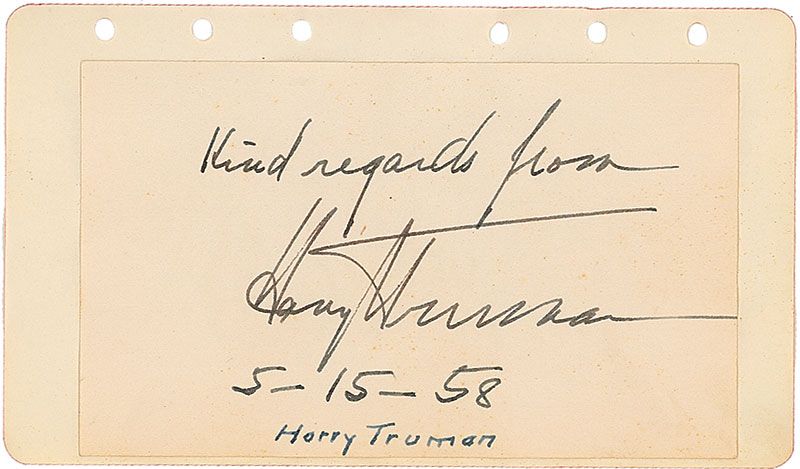 Kind regards from
Harry Truman
5-15-58
Harry Truman